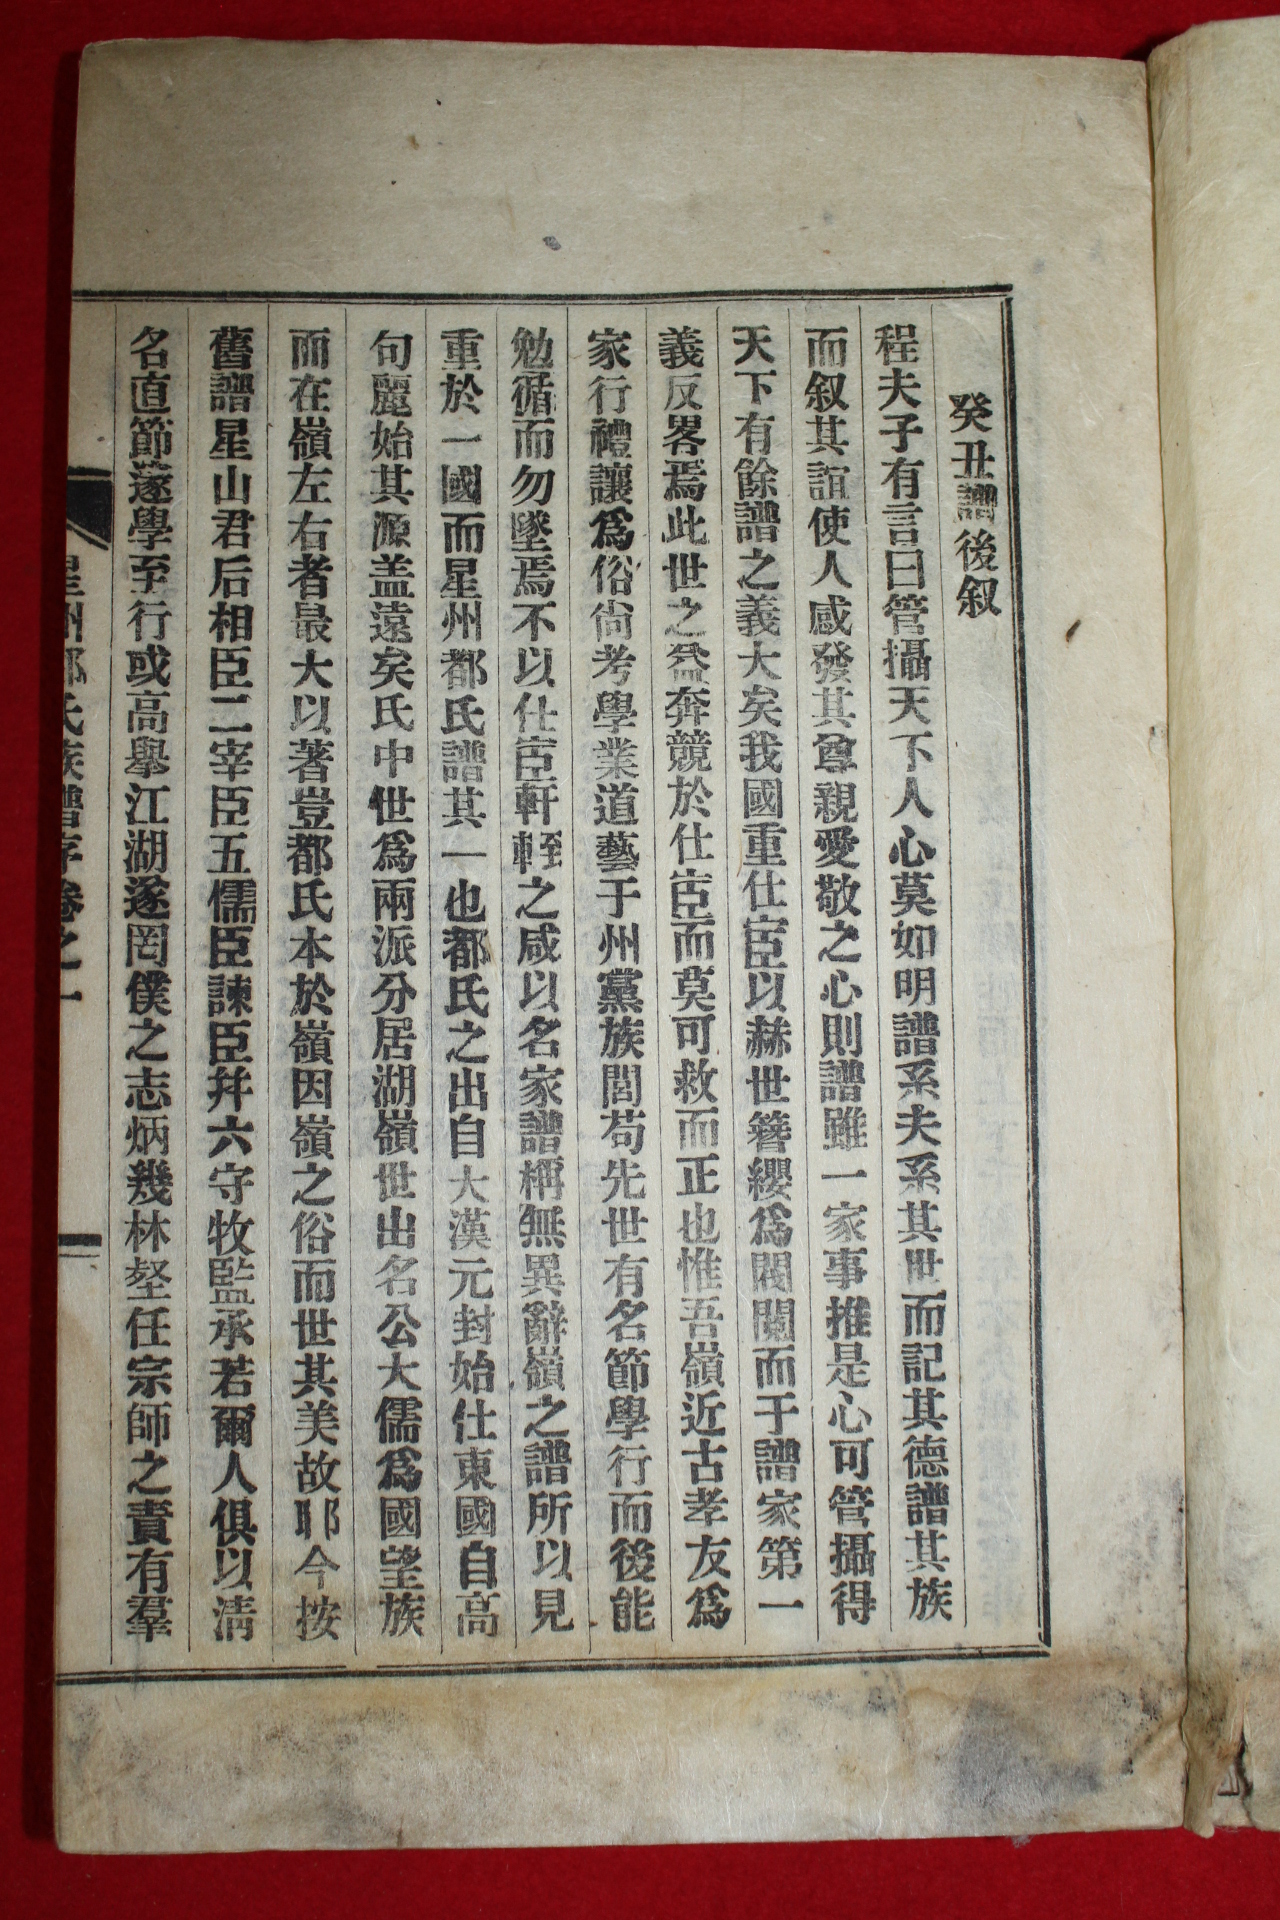 癸丑譜後叙
程夫子有言曰管攝天下人心莫如明譜系夫系其世而記其德譜其族
而叙其誼使人感發其尊親愛敬之心則譜雖一家事推是心可管攝得
天下有餘譜之義大矣我國重仕宦以赫世簪纓爲閥閱而于譜家第一
義反畧焉此世之益奔競於仕宦而莫可救而正也惟吾嶺近古孝友爲
家行禮讓爲俗尙考學業道藝于州黨族閭苟先世有名節學行而後能
勉循而勿墜焉不以仕宦軒輊之咸以名家譜稱無異辭嶺之譜所以見
重於一國而星州都氏譜其一也都氏之出自大漢元封始仕東國自高
句麗始其源盖遠矣氏中世爲兩派分居湖嶺世出名公大儒爲國望族
而在嶺左右者最大以著豈都氏本於嶺因嶺之俗而世其美故耶今按
舊譜星山君后相臣二宰臣五儒臣諫臣幷六守牧監承若爾人俱以淸
名直節邃學至行或高擧江湖遂罔僕之志炳幾林壑任宗師之責有羣
星州都氏族譜序卷之一